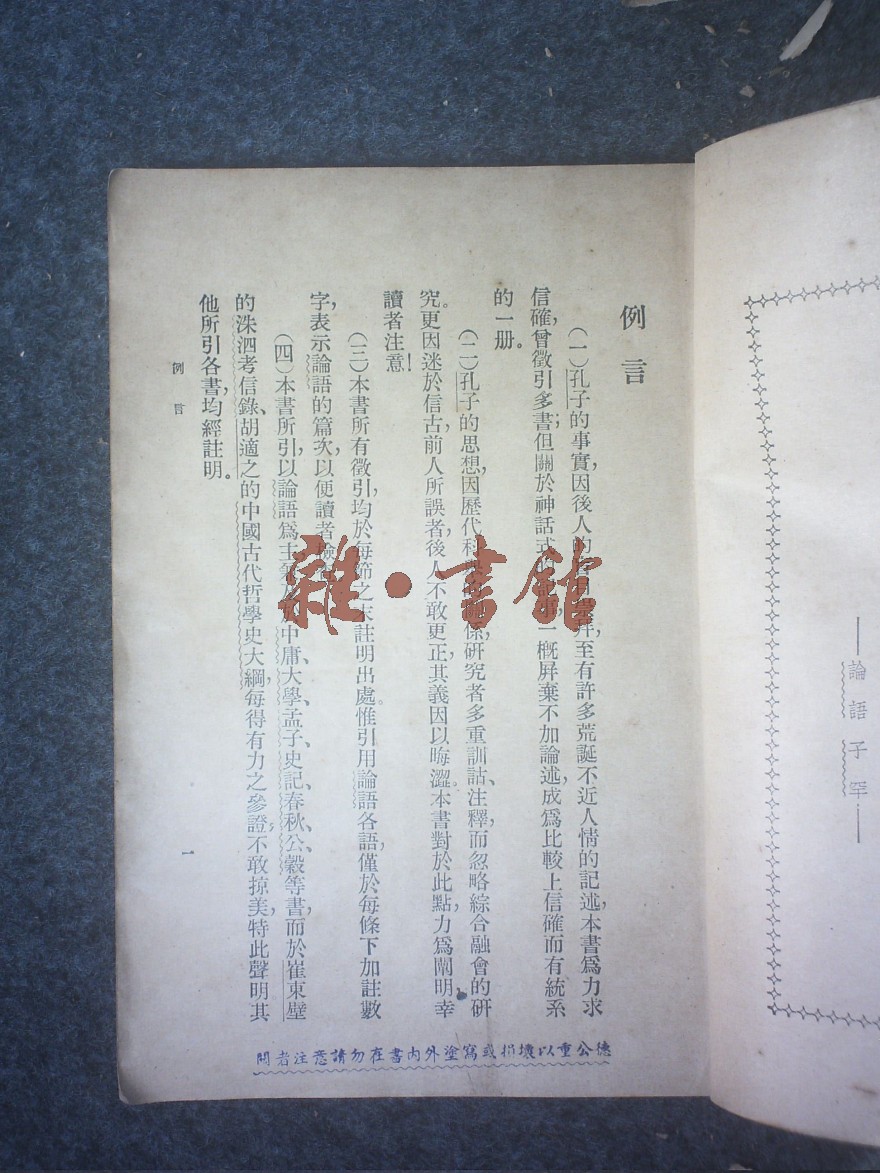 ——論語子罕——
例言
(一)孔子的事實,因後人的崇拜,至有許多荒誕不近人情的記述,本書爲力求
信確,曾徵引多書;但關於神話式的一概屏棄不加論述,成爲比較上信確而有統系
的一册。
(二)孔子的思想,因歷代科係,研究者多重訓詁、注釋,而忽略綜合融會的研
究。更因迷於信古,前人所誤者,後人不敢更正,其義因以晦澀。本書對於此點,力爲闡明,幸
讀者注意!
(三)本書所有徵引,均於每節之末註明出處。惟引用論語各語,僅於每條下加註數
字,表示論語的篇次,以便讀者檢
(四)本書所引,以論語爲主,中庸、大學、孟子、史記、春秋、公、穀等書,而於崔東壁
的洙泗考信錄、胡適之的中國古代哲學史大綱,每得有力之參證,不敢掠美,特此聲明。其
他所引各書,均經註明。
例言
一
閱者注意請勿在書内外塗寫或損壞以重公德
雜·書館